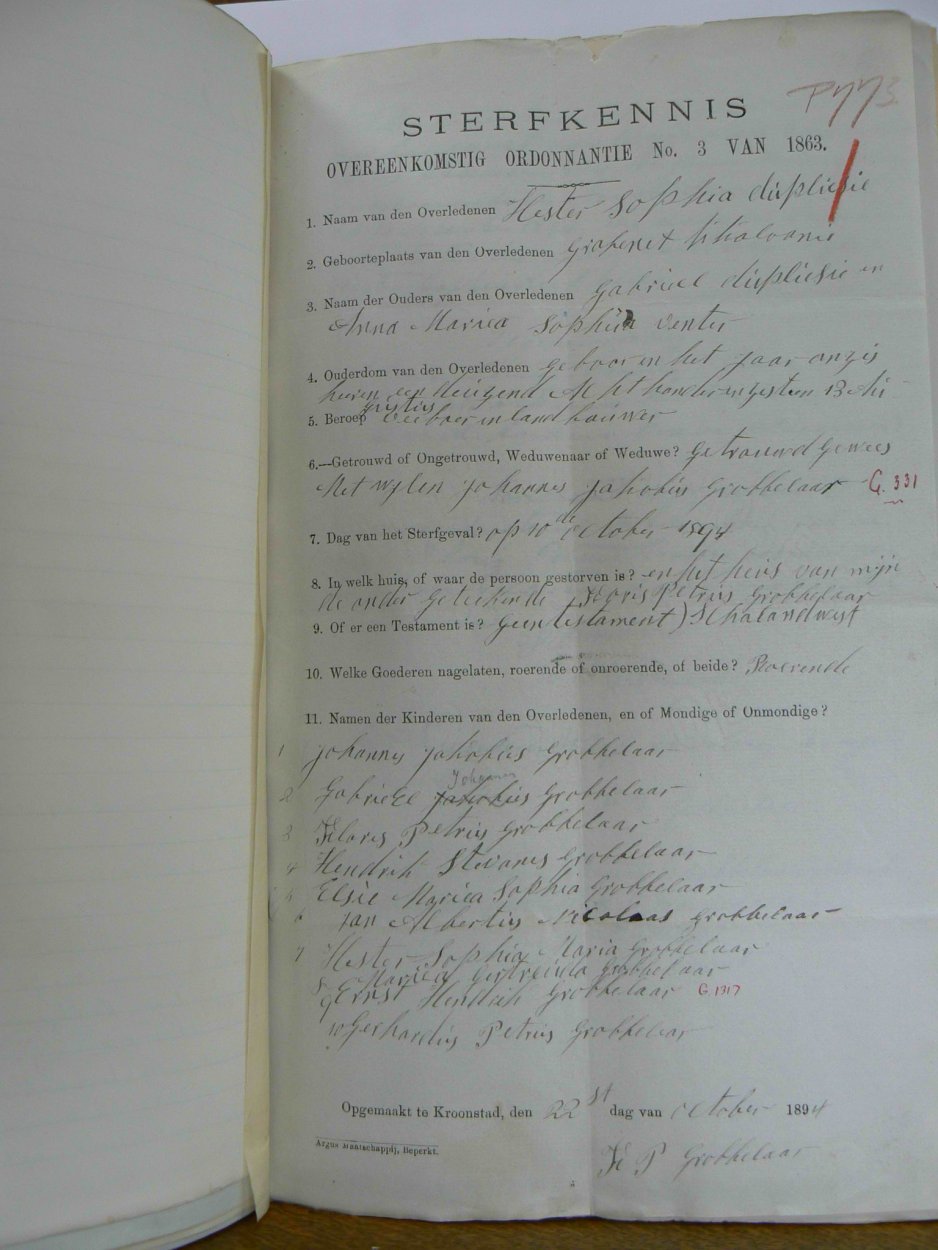 P773
STERFKENNIS
OVEREENKOMSTIG ORDONNANTIE No. 3 VAN 1863.
1. Naam van den Overledenen Hester Sophia duplisie
2. Geboorteplaats van den Overledenen
3. Naam der Ouders van den Overledenen Gabriel duplisie en
Anna Mariea Sophia venter
4. Ouderdom van den Overledenen geboor en het jaar onzis
heren een duizend Acht honder
5. Beroep veeboer en land bouwer
6.—Getrouwd of Ongetrouwd, Weduwenaar of Weduwe? getrouwd gewees
Met wylen johannes jakobus grobbelaar G. 331
7. Dag van het Sterfgeval? op 10 de October 1894
8. In welk huis, of waar de persoon gestorven is? en het heus van mijn
de onder geteekende Floris Petrus grobbelaar
9. Of er een Testament is? geen testament) Schalandwyt
10. Welke Goederen nagelaten, roerende of onroerende, of beide? Roerende
11. Namen der Kinderen van den Overledenen, en of Mondige of Onmondige?
1 johannes jakobus grobbelaar
Johannes
2 Gabrieel jakobus grobbelaar
3 Floris Petrus grobbelaar
4 Hendrik Stevanes grobbelaar
5 Elsie Mariea Sophia grobbelaar
6 jan Albertus Nicolaas grobbelaar
7 Hester Sophia Maria grobbelaar
8 Mariea grobbelaar
9 Ernst Hendrik grobbelaar G. 1317
10 gerhardus Petrus grobbelaar
Opgemaakt te Kroonstad, den 22 st dag van October 1894
Argus Maatschappij, Beperkt.
F P grobbelaar